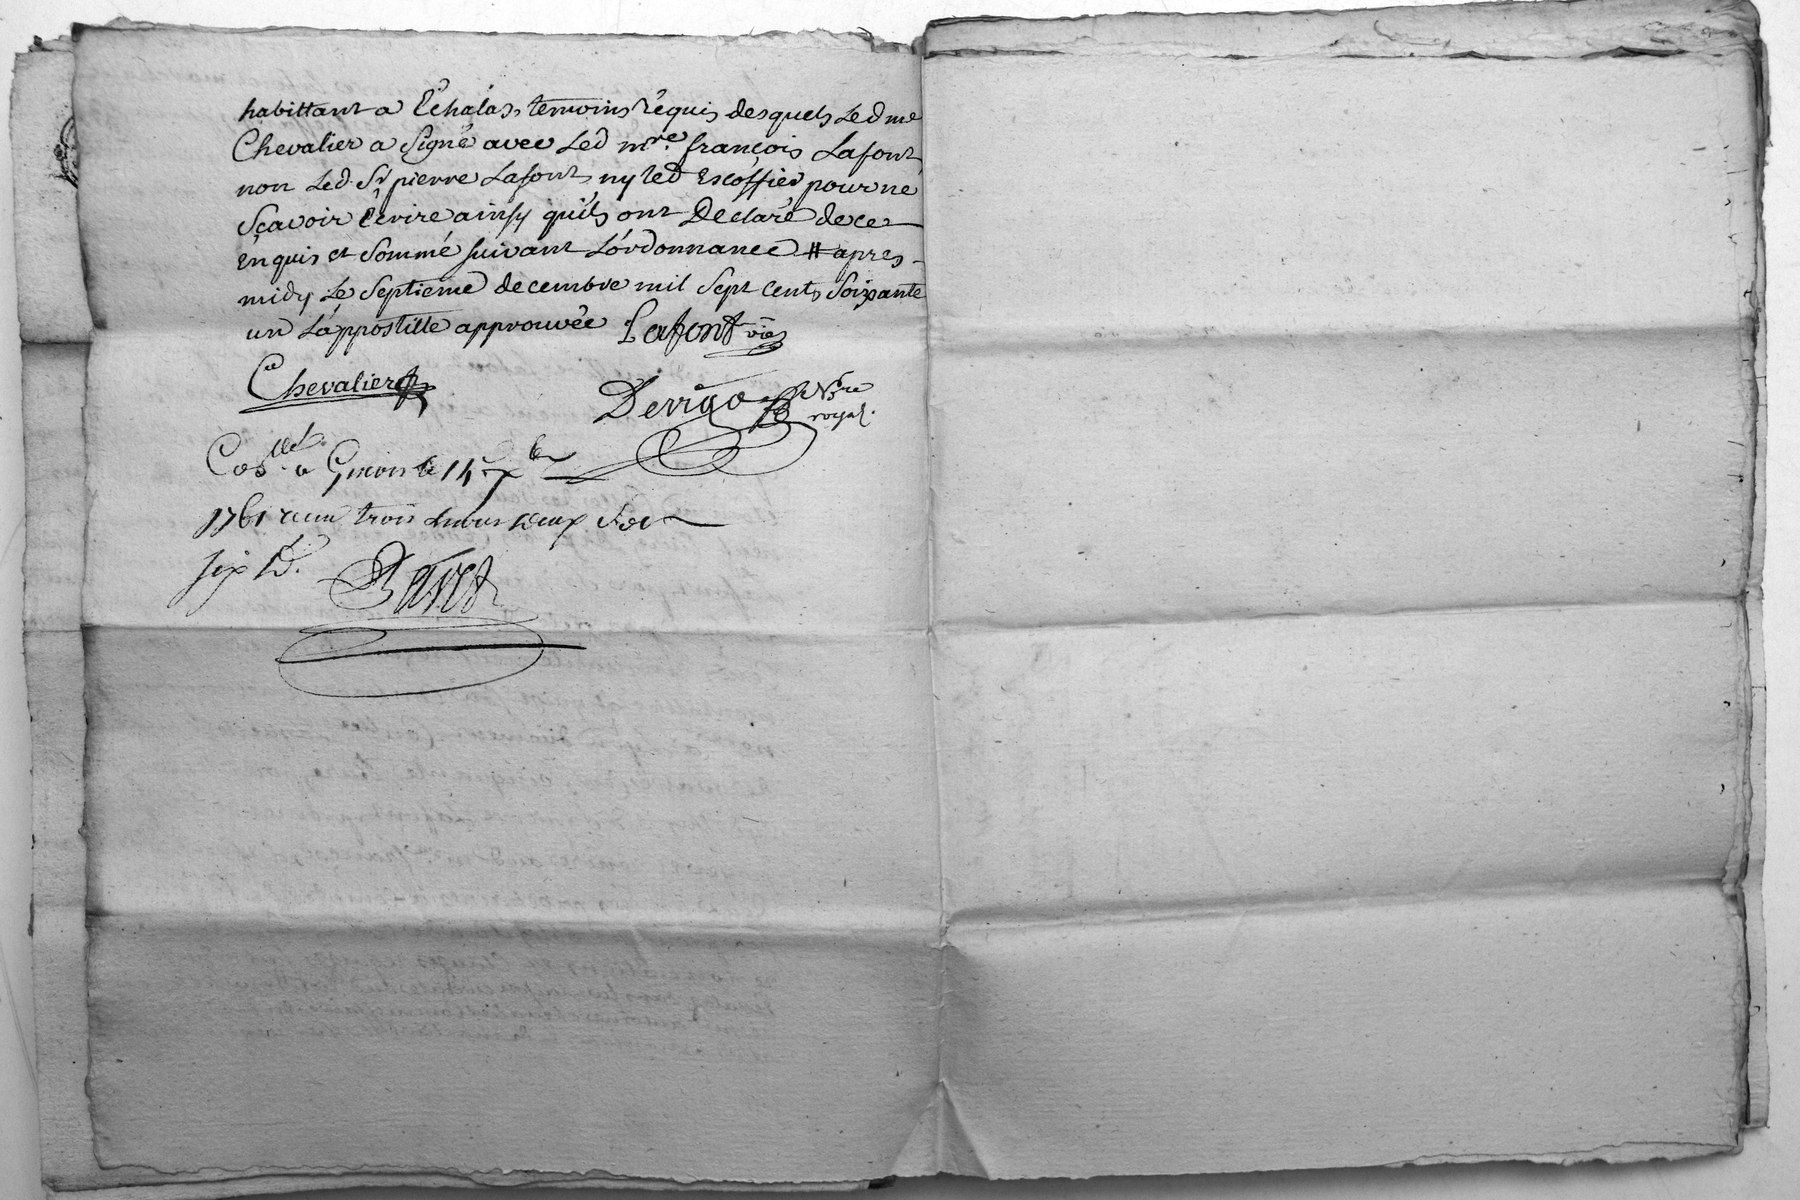 habittant a Echalas, temoins réquis desquels led me
Chevalier a signé avec led mre. françois Lafont
non led. Sr pierre Lafont, ny led Escoffier pour ne
sçavoir Ecrire ainsy quils ont Declaré de ce
enquis et sommé suivant L'ordonnance # apres
midy Le septieme decembre mil sept cents soixante
un L'appostille approuvée Lafont
Chevalier Nre
royal.
a Givors le 14 xbre
1761 recu trois livres deux
six d.